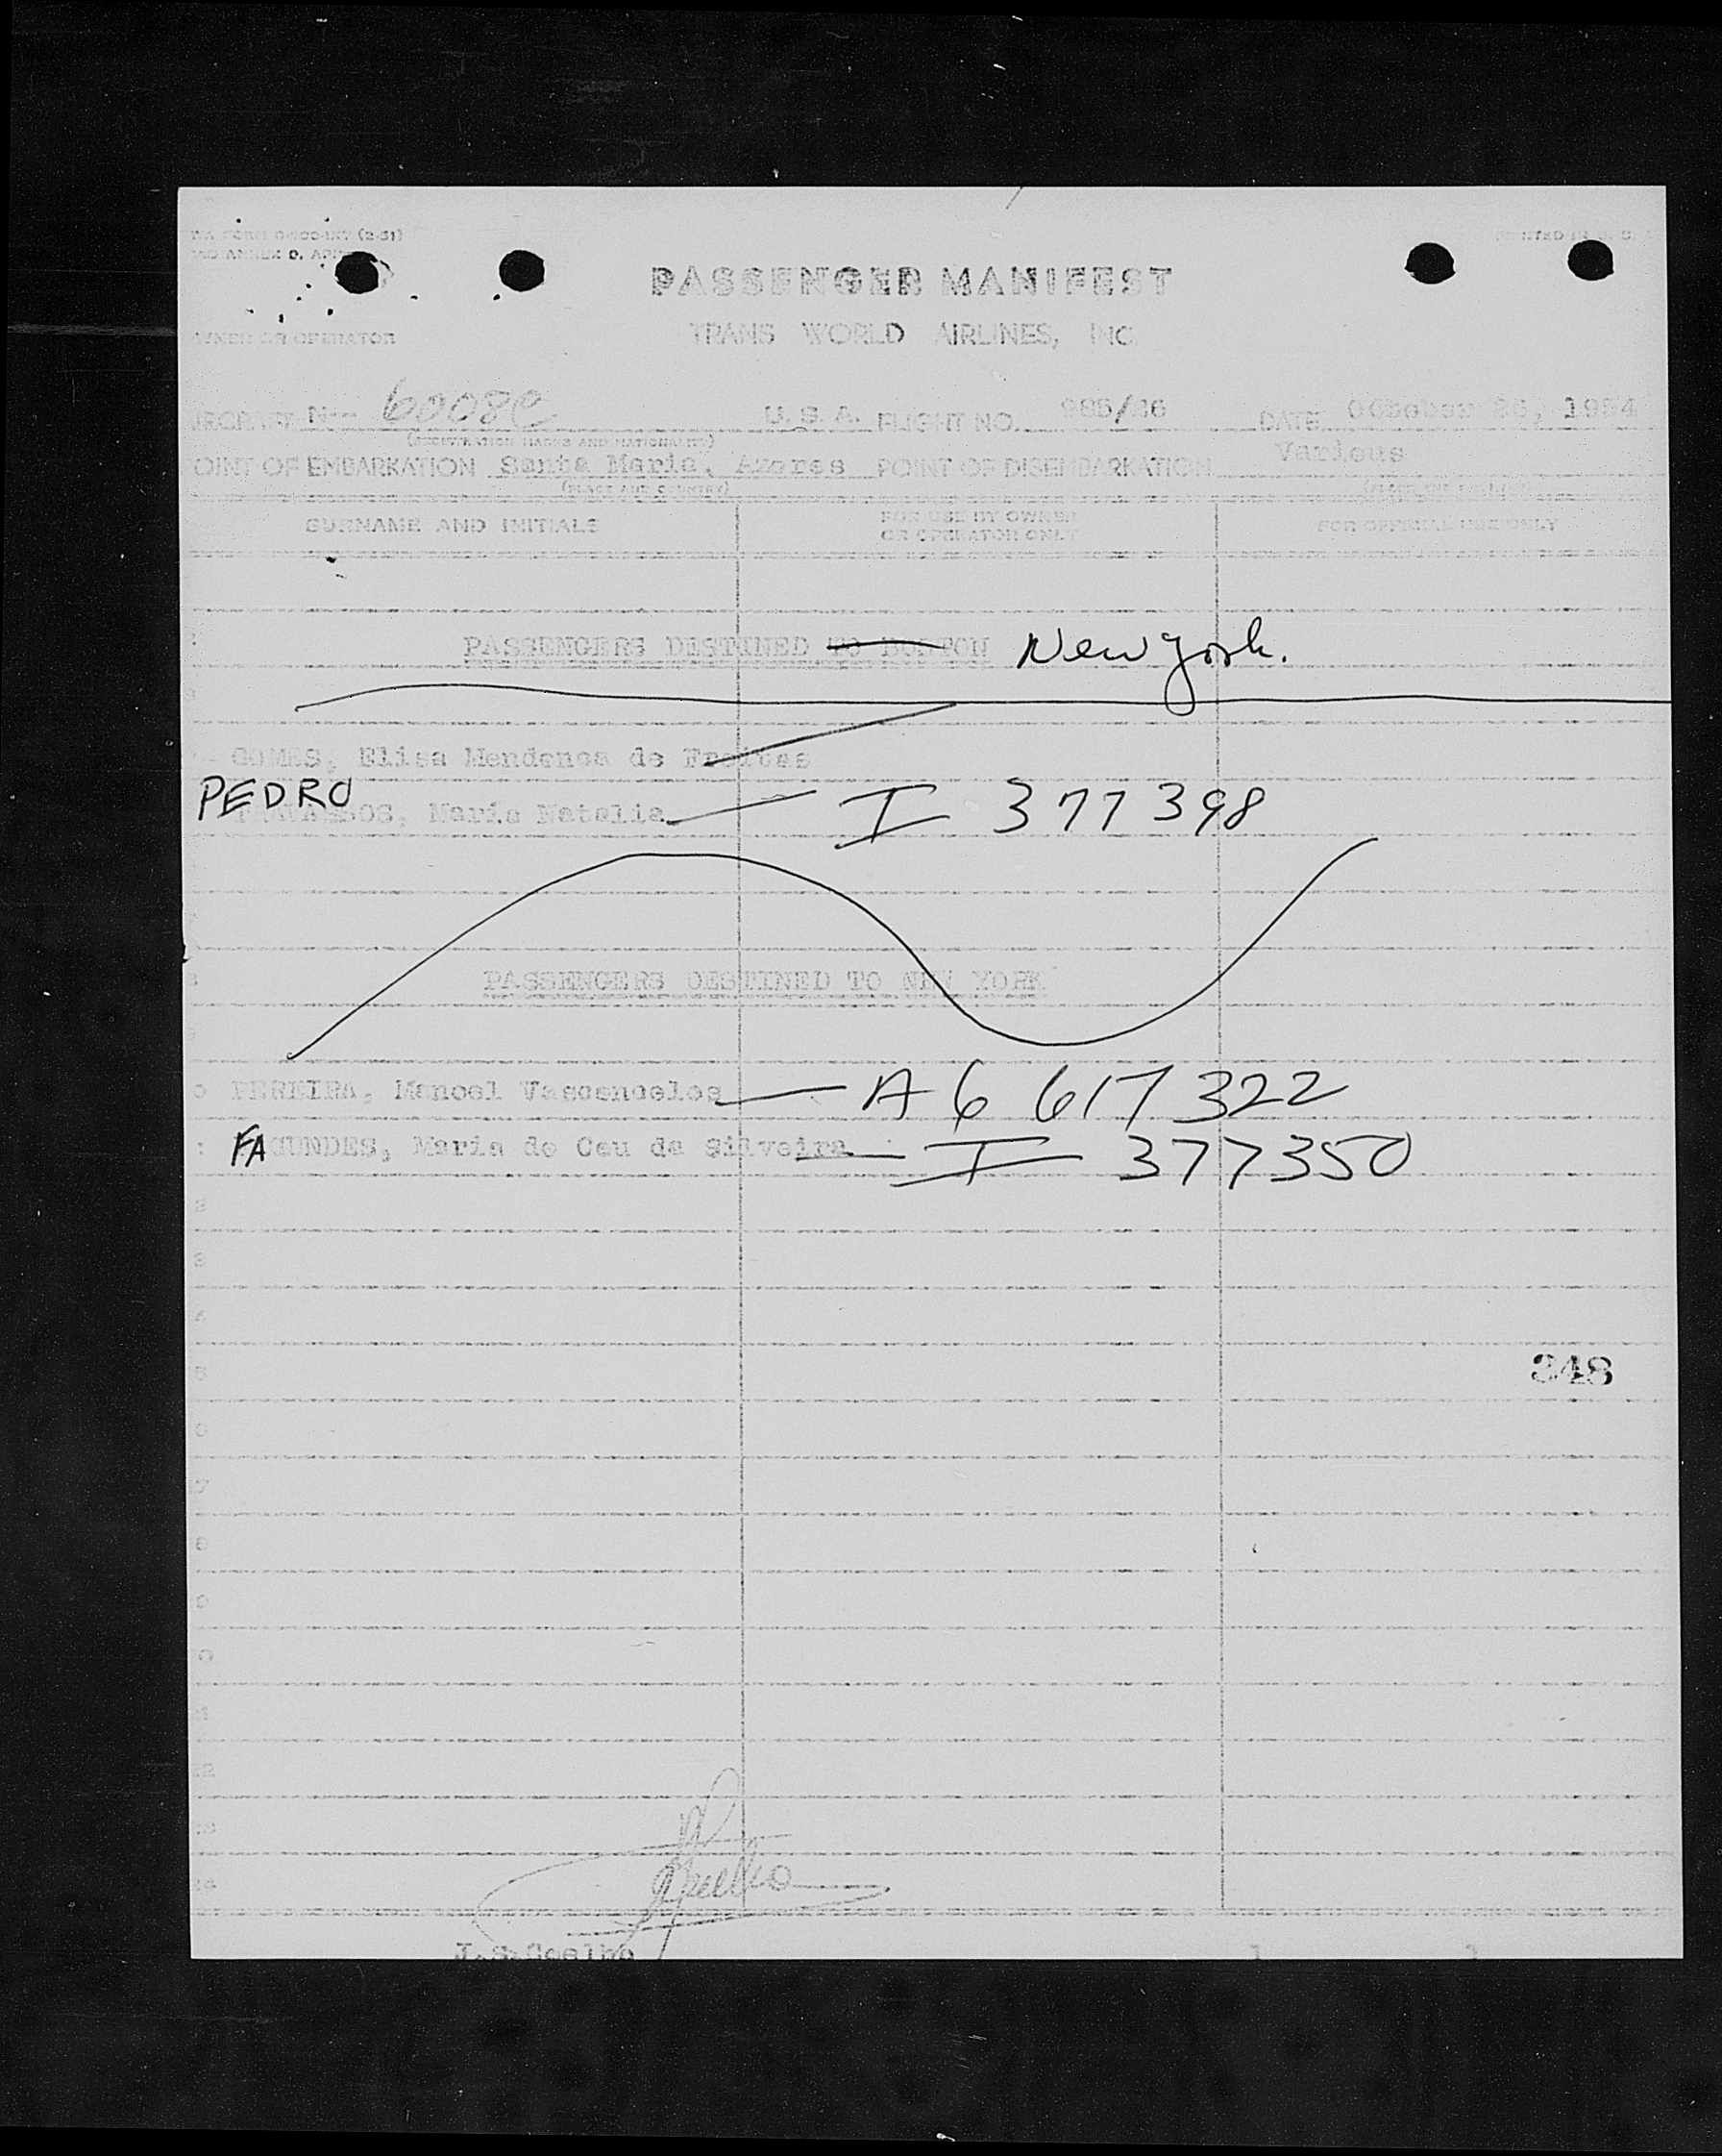 (2-51)
PASSENGER MANIFEST
OWNER OR OPERATOR TRANS WORLD AIRLINES, INC.
N- 6008C U.S.A. FLIGHT NO. 985/26 DATE October 26, 1954
(REGISTRATION MARKS AND NATIONALITY)
POINT OF EMBARKATION Santa Maria, Azores POINT OF DISEMBARKATION Various
(PLACE AND COUNTRY)
SURNAME AND INITIALS FOR USE BY OWNER OR OPERATOR ONLY FOR OFFICIAL USE ONLY
PASSENGERS DESTINED TO BOSTON New York.
GOMES, Elisa Mendonca de Freitas
PEDRO
Maria Natalia I 377398
PASSENGERS DESTINED TO NEW YORK
PEREIRA, Manoel Vasconcelos A6 617 322
FAGUNDES, Maria do Ceu da Silveira I 377350
348
J.S.Coelho 1 1